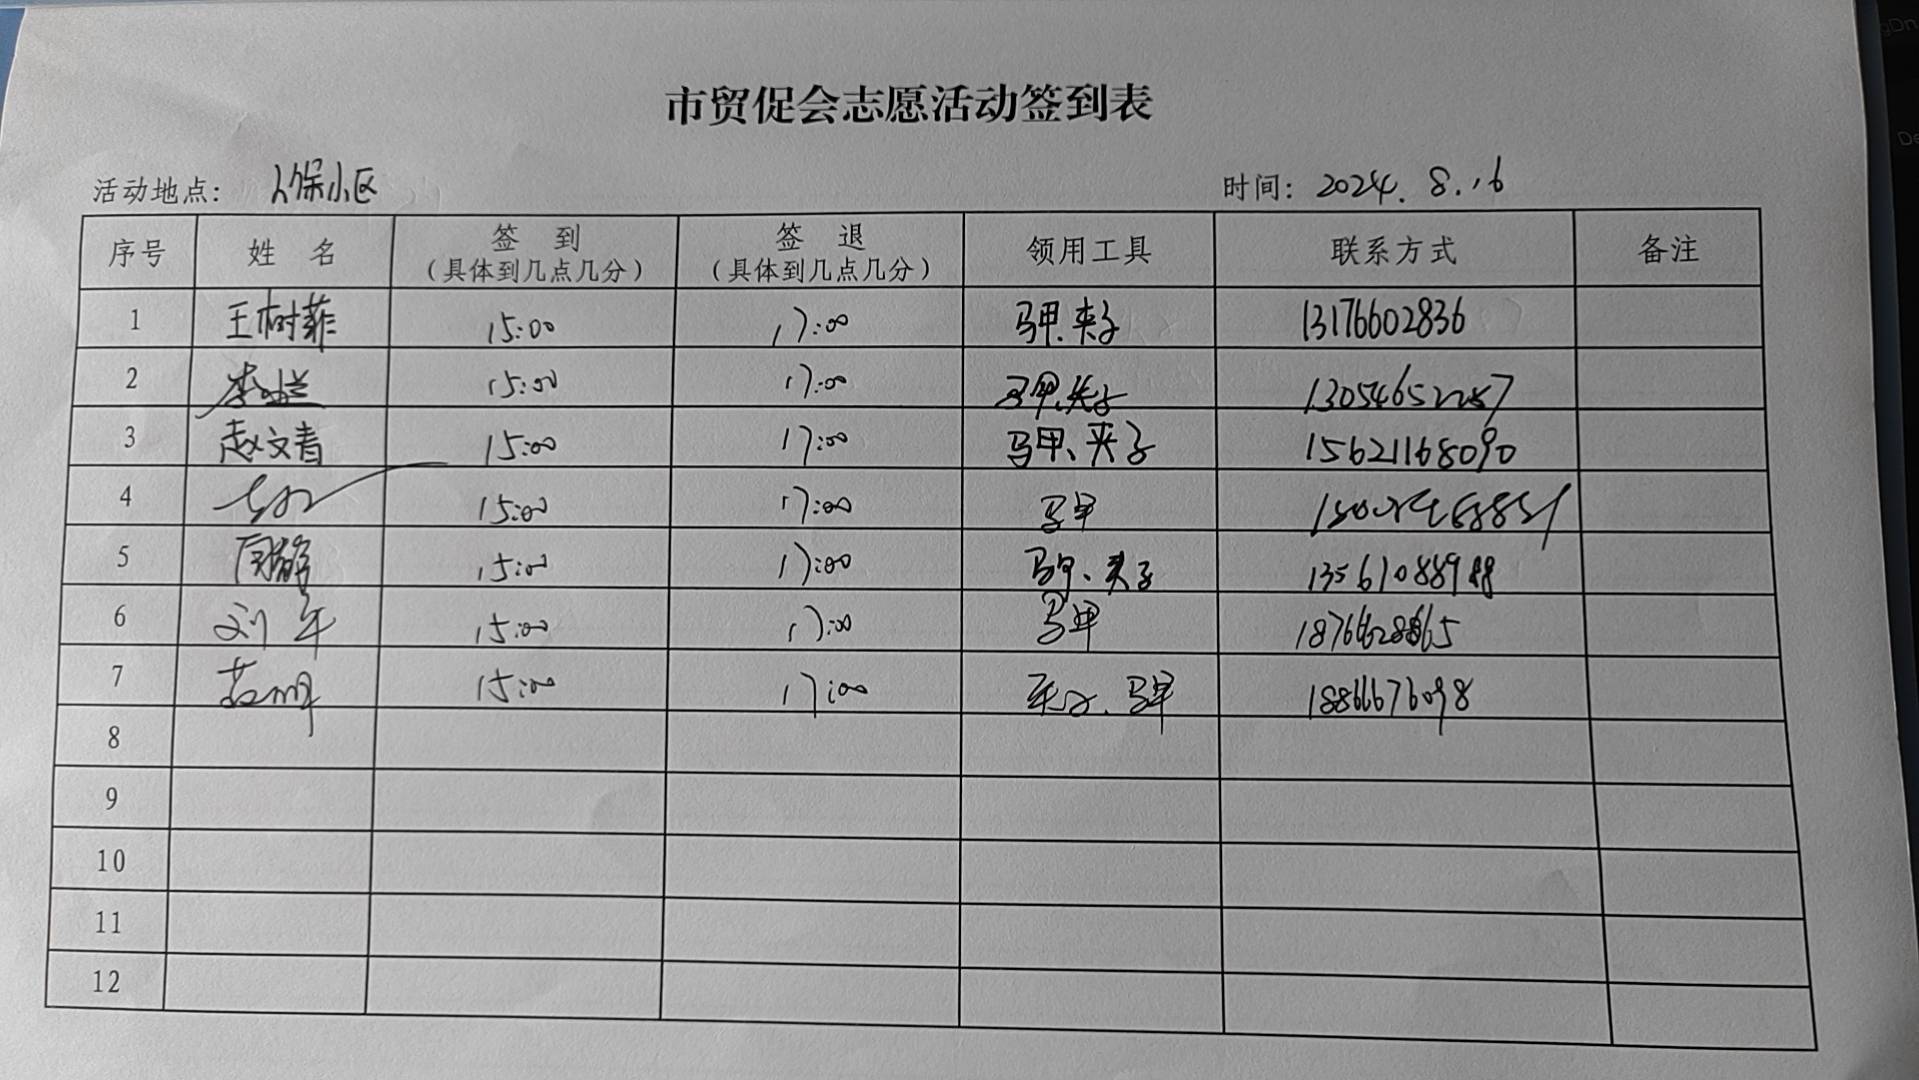 市贸促会志愿活动签到表
活动地点: 人保小区 时间: 2024.8.16
序号 姓 名 签 到 (具体到几点几分) 签 退 (具体到几点几分) 领用工具 联系方式 备注
1 王树菲 15:00 17:00 马甲、夹子 13176602836
2 15:00 17:00 马甲、夹子
3 赵文青 15:00 17:00 马甲、夹子 15621168090
4 15:00 17:00 马甲
5 15:00 17:00 马甲、夹子
6 刘军 15:00 17:00 马甲
7 15:00 17:00 夹子、马甲 18866676098
8
9
10
11
12